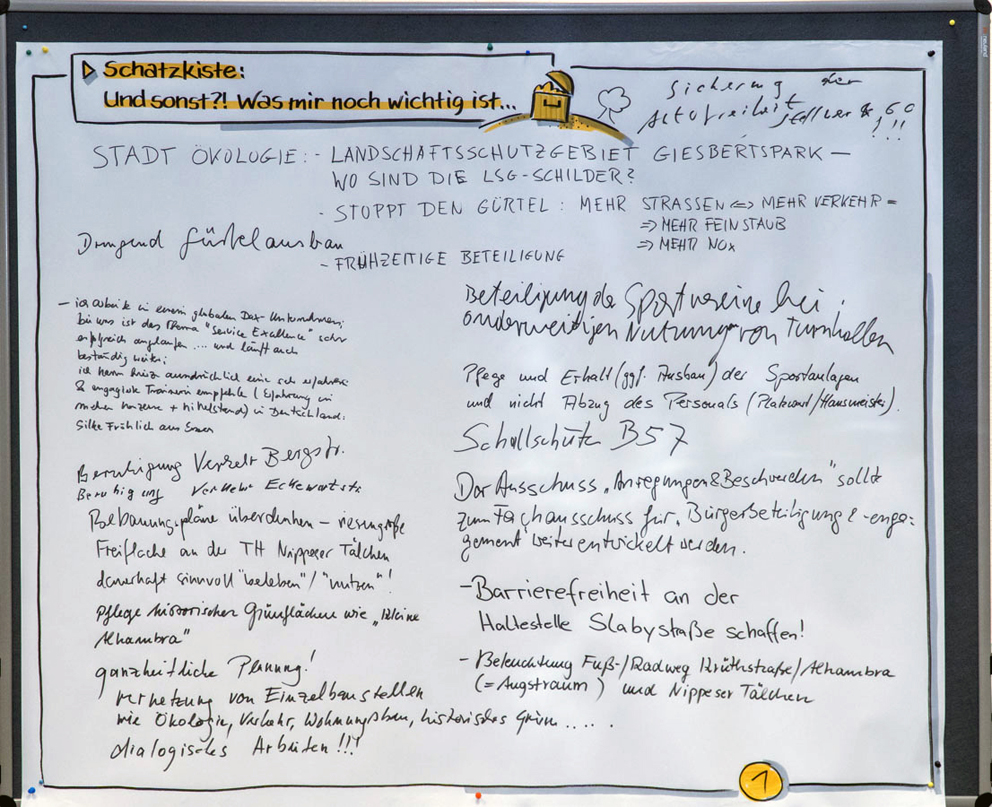 Schatzkiste:
Und sonst?! Was mir noch wichtig ist...
Sicherung der
Autofreiheit
60
!!!
STADT ÖKOLOGIE: - LANDSCHAFTSSCHUTZGEBIET GIESBERTSPARK –
WO SIND DIE LSG-SCHILDER?
- STOPPT DEN GÜRTEL: MEHR STRASSEN <=> MEHR VERKEHR =
=> MEHR FEINSTAUB
=> MEHR NOx
Dringend Gürtelausbau
- FRÜHZEITIGE BETEILIGUNG
– ich arbeite in einem globalen Dax-Unternehmen;
bei uns ist das Thema "Service Excellence" sehr
erfolgreich angelaufen ... und läuft auch
beständig weiter;
ich kann ausdrücklich eine sehr erfahrene
& engagierte Trainerin empfehlen (Erfahrung in
+ Mittelstand) in Deutschland:
Silke Fröhlich aus Essen
Beruhigung Verkehr Bergstr.
Beruhigung Verkehr Eckewartstr
Bebauungspläne überdenken – riesengroße
Freifläche an der TH Nippeser Tälchen
dauerhaft sinnvoll "beleben"/"nutzen"!
Pflege historischer Grünflächen wie „kleine
Alhambra"
ganzheitliche Planung!
Vernetzung von Einzelbaustellen
wie Ökologie, Verkehr, Wohnungsbau, historisches Grün .....
dialogisches Arbeiten!!!
Beteiligung der Sportvereine bei
anderweitigen Nutzung von Turnhallen
Pflege und Erhalt (ggf. Ausbau) der Sportanlagen
und nicht Abzug des Personals (Platzwart/Hausmeister).
Schallschutz B57
Der Ausschuss „Anregungen & Beschwerden" sollte
zum Fachausschuss für „Bürgerbeteiligung & -enga-
gement weiterentwickelt werden.
- Barrierefreiheit an der
Haltestelle Slabystaße schaffen!
- Beleuchtung Fuß-/Radweg Kruthstraße/Alhambra
(= Angstraum) und Nippeser Tälchen
1